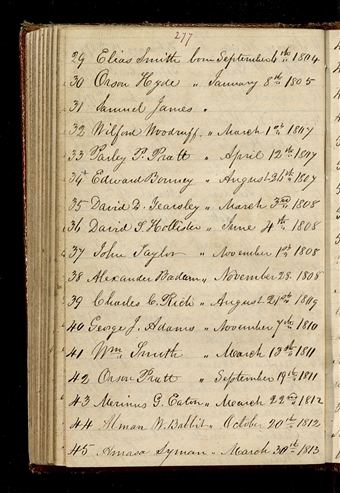 277
29 Elias Smith born September 6th 1804
30 Orson Hyde " January 8th 1805
31 Samuel James "
32 Wilford Woodruff " March 1st 1807
33 Parley P. Pratt " April 12th 1807
34 Edward Bonney " August 26th 1807
35 David D. Yearsley " March 3rd 1808
36 David S. Hollister " June 4th 1808
37 John Taylor " November 1st 1808
38 Alexander Badam " November 28. 1808
39 Charles C. Rich " August 21st 1809
40 George J. Adams " November 7th 1810
41 Wm Smith " March 13th 1811
42 Orson Pratt " September 19th 1811
43 Merinus G. Eaton " March 22nd 1812
44 Alman W. Babbit " October 20th 1812
45 Amasa Lyman " March 30th 1813